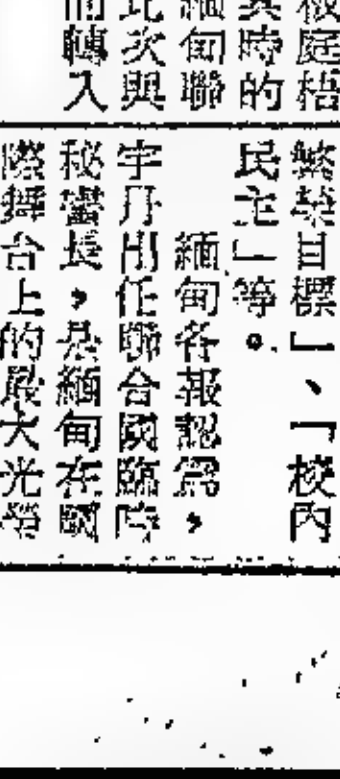 校庭梧
其時的
緬甸聯
此次與
而轉入
繁榮目標」、「校內
民主」等。
緬甸各報認爲，
宇丹出任聯合國臨時
秘書長，是緬甸在國
際舞台上的最大光榮